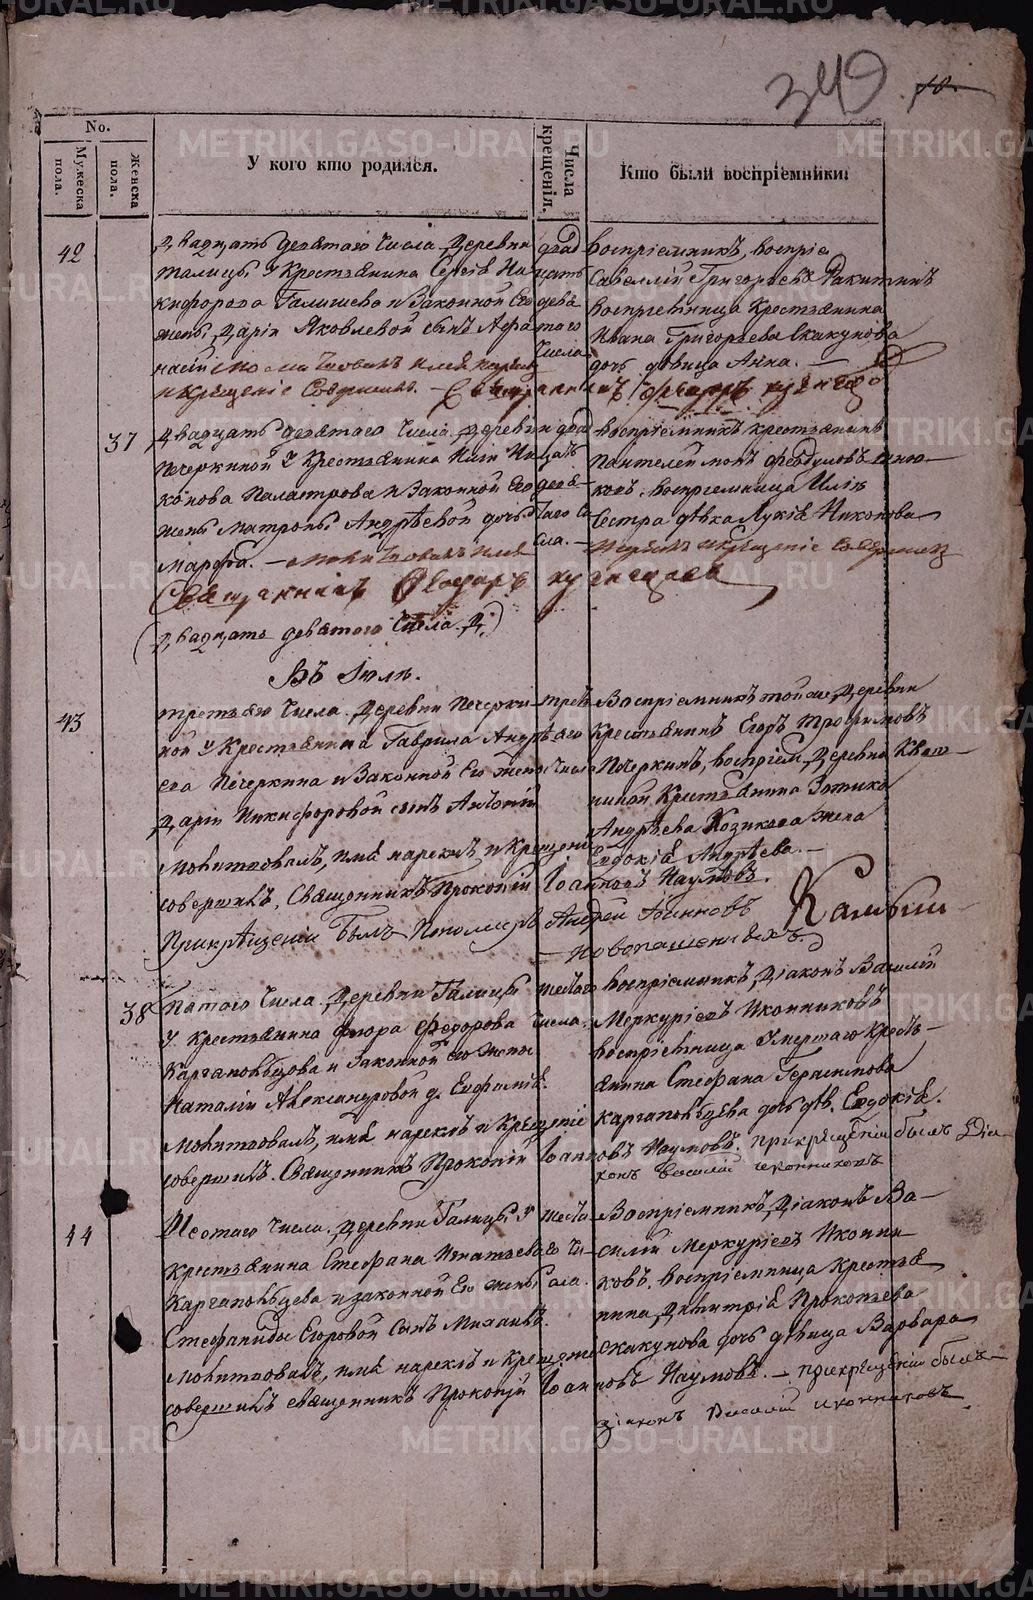 METRIKI.GASO-URAL.RU
349. 70.
No.
Мужеска пола.
Женска пола.
У кого кто родился.
Числа крещенія.
Кто были воспріемники:
42
Двадцать девятаго Числа Деревни
Талицы у Крестьянина Сергѣя Ни
кифорова Галишева и Законной Его
жены Даріи Яковлевой сынъ Афа
насій молитвовалъ имя нарекъ
и крещеніе Совершилъ. Священникъ Ѳеодоръ
двад
цать
девя
таго
Числа
воспріемникъ, воспріе
Савелій Григорьевъ Ракитинъ
воспріемница Крестьянина
Ивана Григорьева Скакунова
дочь дѣвица Анна. —
37
Двадцать девятаго Числа Деревни
Печеркиной у Крестьянина Иліи Ни
конова Паластрова и Законной Его
жены Матроны Андрѣевой дочь
Марфа. — молитвовалъ имя
двад
цать
девя-
таго Чи
сла. —
воспріемникъ крестьянинъ
Пантелеймонъ Ѳеодуловъ
ковъ. воспріемница Иліи
Сестра дѣвка Лукія Никонова
нарекъ и крещеніе совершилъ
Священникъ Ѳеодоръ
(Двадцать девятаго Числа. Д.)
Въ Іюлѣ.
43
третьяго Числа. Деревни Печерки-
ной у Крестьянина Гаврила Андрѣ
ева Печеркина и Законной Его жены
Даріи Никифоровой сынъ Антоній
Молитвовалъ, имя нарекъ и Крещеніе
совершилъ, Священникъ Прокопій Іоанновъ Наумовъ.
При крѣщеніи былъ Пономарь Андрей Іоанновъ
Новопашенныхъ.
треть
яго
Числа
Воспріемникъ той же Деревни
Крестьянинъ Егоръ Трофимовъ
Печеркинъ, воспріем. Деревни Кваш-
ниной Крестьянина Зотика
Андрѣева Козикова жена
Евдокія Андрѣева. —
38
Пятаго Числа. Деревни Талицы
у Крестьянина Флора Федорова
Каргапольцова и Законной его жены
Наталіи Александровой д. Евфимія.
Молитвовалъ, имя нарекъ и Крещеніе
совершилъ. Священникъ Прокопій Іоанновъ Наумовъ. при крѣщеніи былъ Діа
конъ Василій Иконниковъ
шестаго
Числа.
воспріемникъ, Діаконъ Василій
Меркуріевъ Иконниковъ
воспріемница Умершаго Кресть-
янина Стефана Герасимова
Каргапольцева дочь дѣв. Евдокія.
44
Шестаго Числа. Деревни Талицы у
Крестьянина Стефана Игнатьева
Каргапольцева и законной Его жены
Стефаниды Егоровой Сынъ Михаилъ.
Молитвовалъ, имя нарекъ и Крещеніе
совершилъ священникъ Прокопій Іоанновъ Наумовъ. — при крѣщеніи былъ
діаконъ Василій Иконниковъ
шеста
го Чи
сла.
Воспріемникъ, Діаконъ Ва-
силій Меркуріевъ Иконни-
ковъ. воспріемница Крестья
нина Димитрія Прокопьева
Скакунова дочь дѣвица Варвара